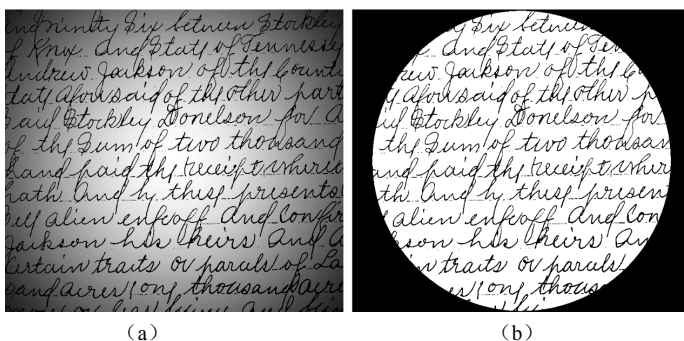 indninty Six between Stockley
of Knox And State of Tennessee
Andrew Jackson of the Count
tate aforesaid of the other part
said Stockley Donelson for a
of the Sum of two thousand
hand paid the receipt wherei
hath And by these presents
self alien enfeoff And Confir
Jackson his heirs And a
certain traits or parcels of La
sand acres long thousand acre
(a)
Six between
And State of Ten
rew Jackson of the Co
aforesaid of the other p
id Stockley Donelson for
the Sum of two thousan
and paid the receipt wher
th And by these present
alien enfeoff And Con
kson his heirs An
in traits or parcels
res long thous
(b)